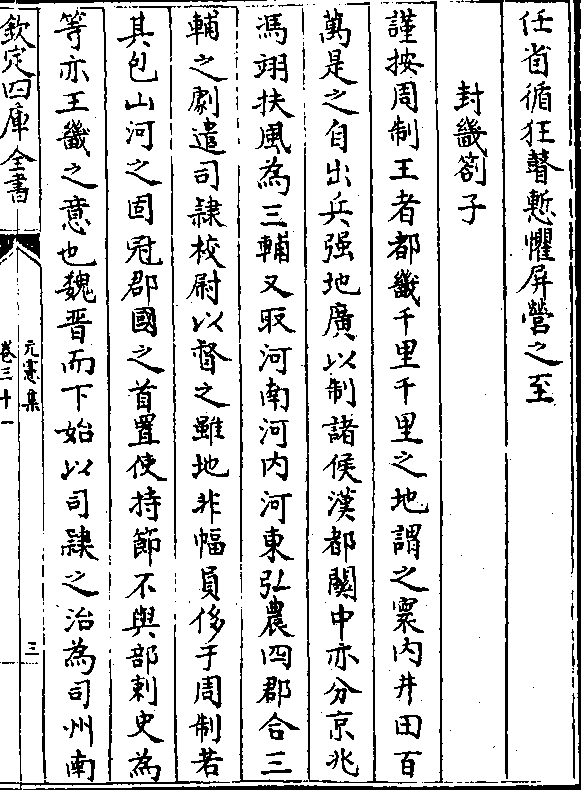 任省循狂瞽慙懼屏營之至
封畿劄子
謹按周制王者都畿千里千里之地謂之寰内井田百
萬是之自出兵强地廣以制諸侯漢都關中亦分京兆
馮翊扶風為三輔又取河南河内河東弘農四郡合三
輔之劇遣司隷校尉以督之雖地非幅員侈于周制若
其包山河之固冠郡國之首置使持節不與部刺史為
等亦王畿之意也魏晋而下始以司隷之治為司州南
欽定四庫全書
元憲集
卷三十一
三